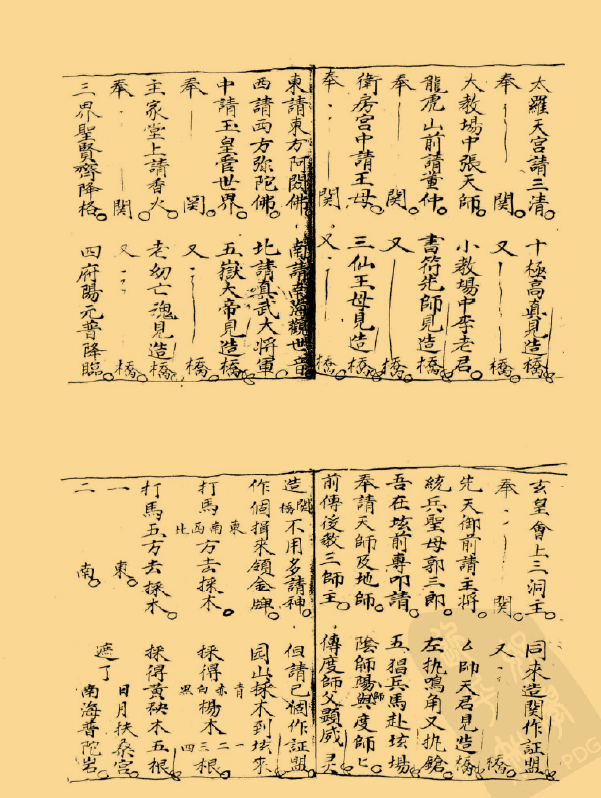 太羅天宮請三清 十極高真見造橋
奉 関 又 橋
大教場中張天師 小教場中李老君
龍虎山前請董仲 書符先師見造橋
奉 関 又 橋
衛房宮中請王母 三仙王母見造橋
奉 関 又 橋
東請東方阿閦佛 南請南海觀世音
西請西方弥陀佛 北請真武大將軍
中請玉皇管世界 五嶽大帝見造橋
奉 関 又 橋
主家堂上請香火 老幼亡魂見造橋
奉 関 又 橋
三界聖賢齊降格 四府陽元普降臨
玄皇會上三洞主 同来造関作証盟
奉 関 又 橋
先天御前請主將 帥天君見造橋
統兵聖母郭三郎 左執鳴角又執鎗
吾在垓前專叩請 五猖兵馬赴垓場
奉請天師及地師 陰師陽師與度師
前傳後教三師主 傳度師父顕威灵
造関橋不用多請神 但請己個作証盟
作個揖来領金牌 园山採木到垓来
打馬東南西北方去採木 採得青赤白黑楊木一二三四根
打馬五方去採木 採得黄秧木五根
一 東 日月扶桑宮
二 南 遮了 南海普陀岩